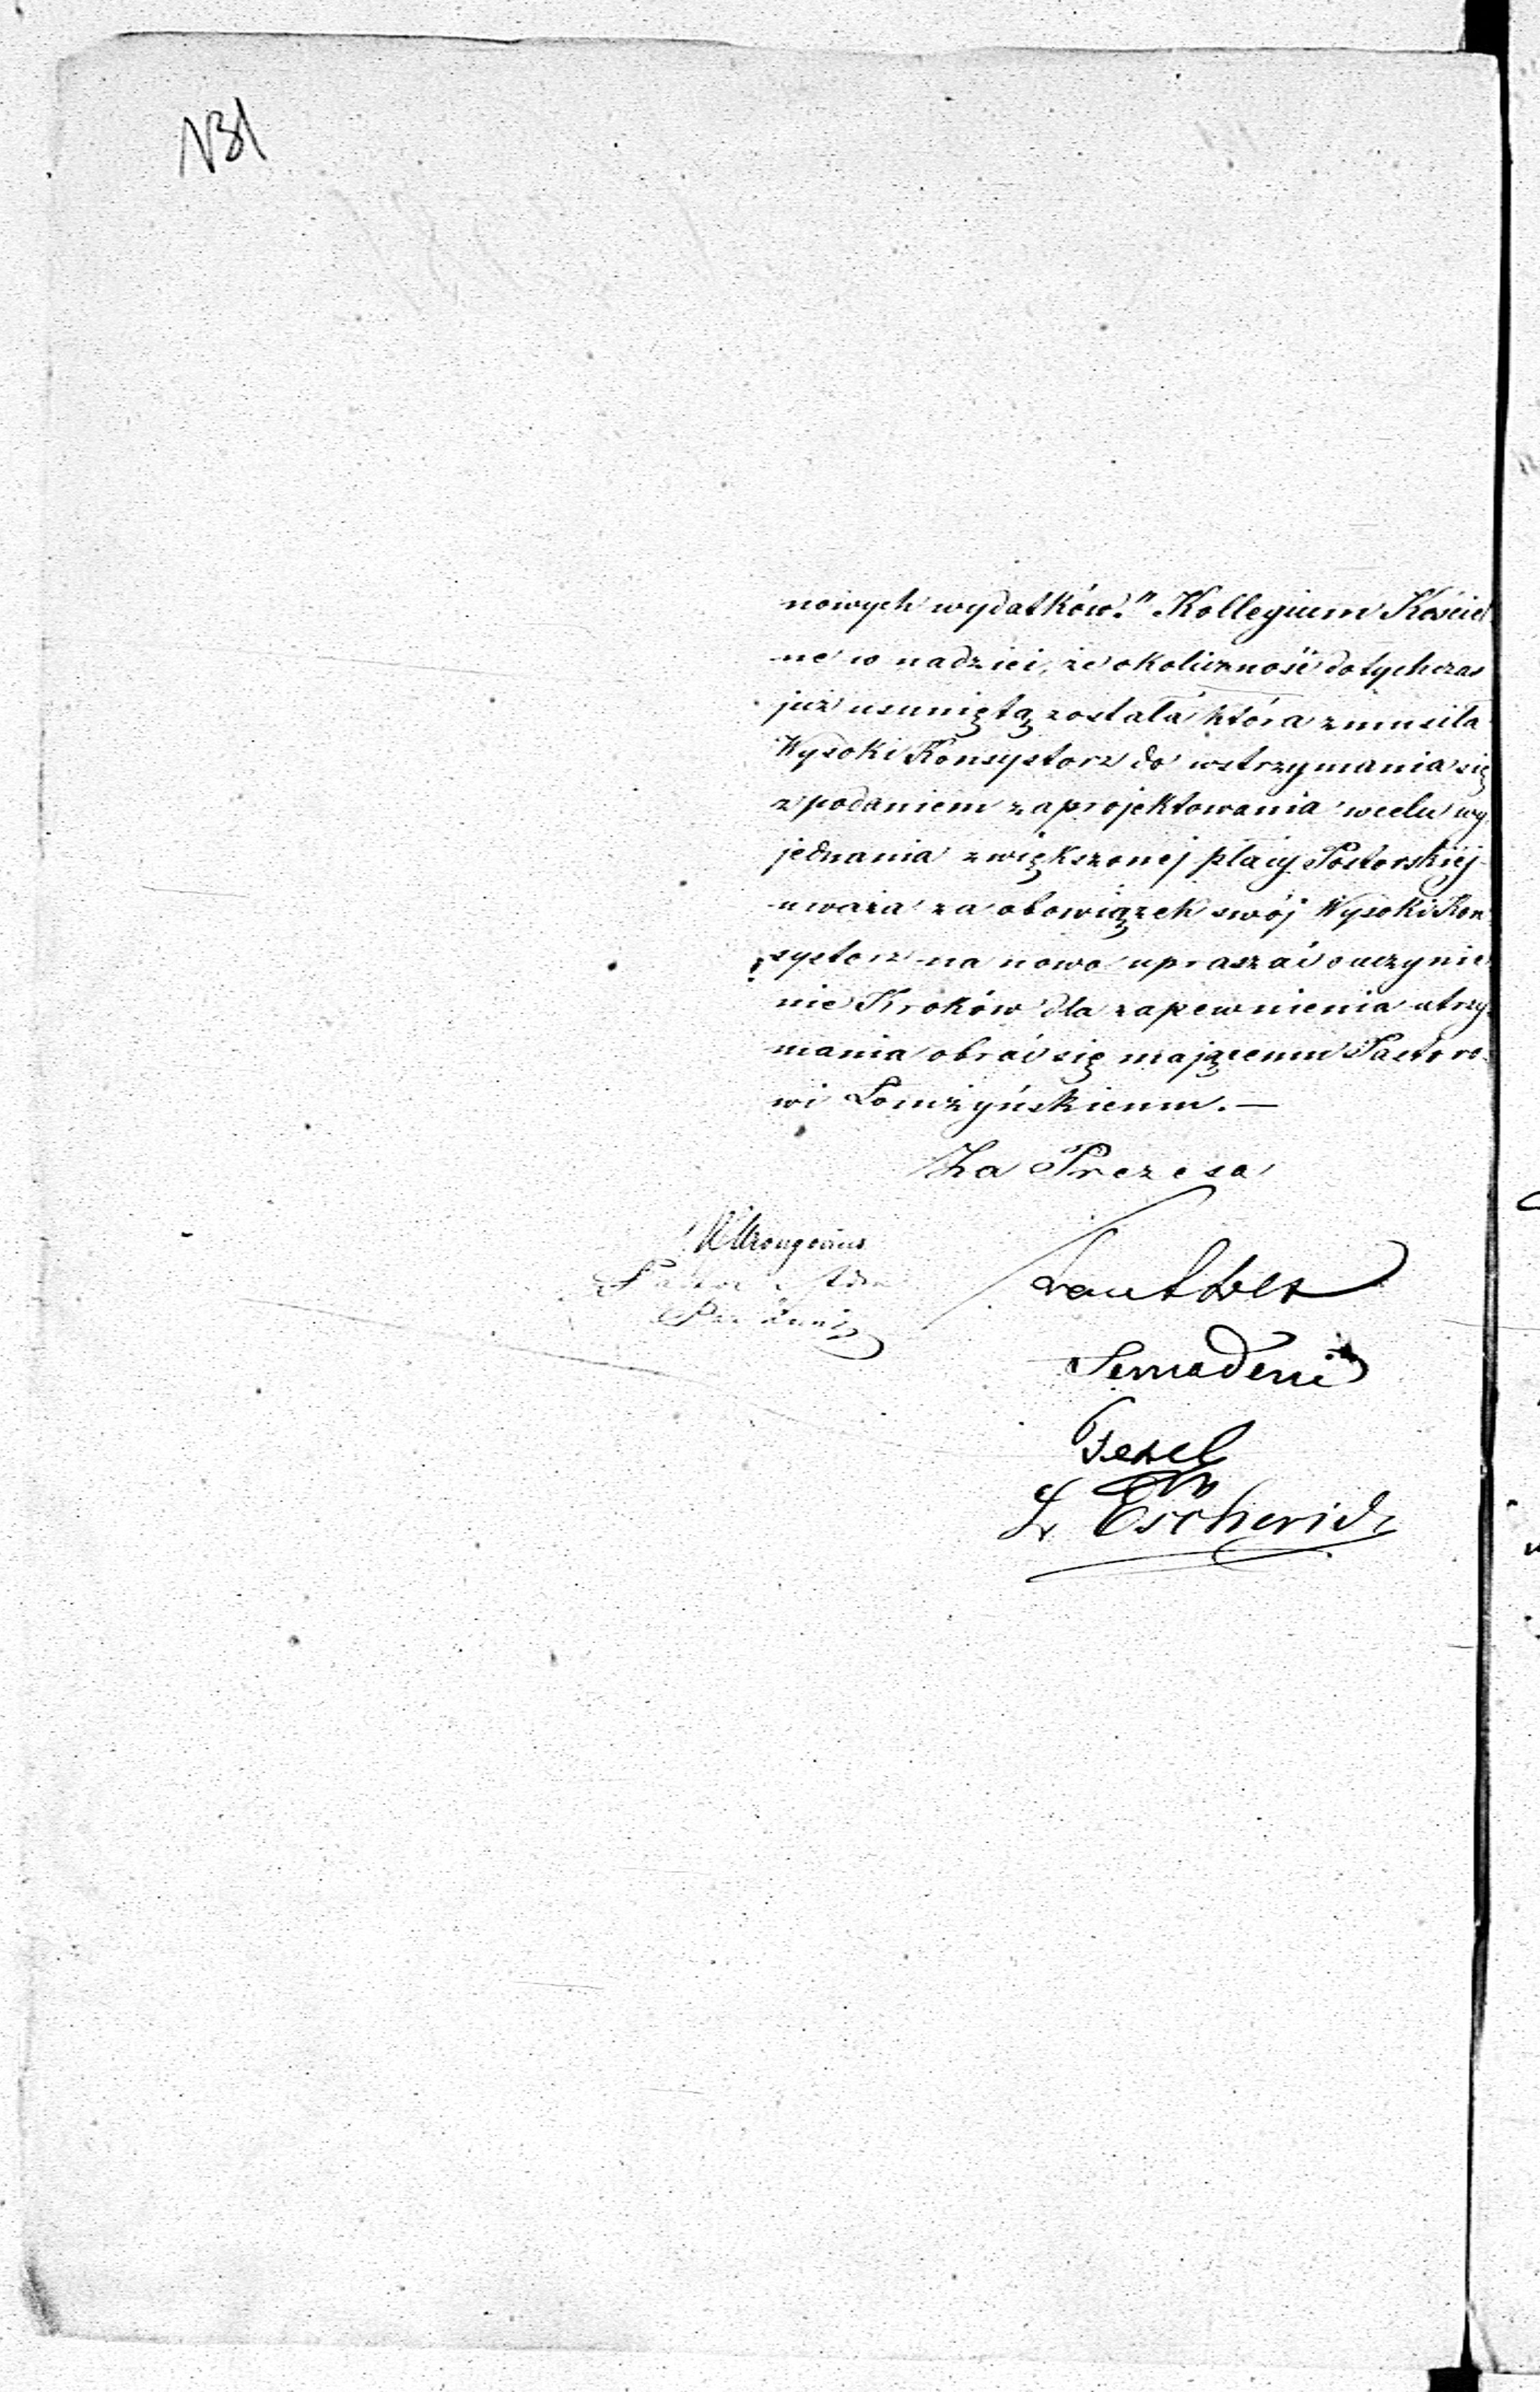 131
nowych wydatków." Kollegium Kościel
ne w nadziei, że okoliczność dotychczas
już usuniętą została która zmusiła
Wysoki Konsystorz do wstrzymania się
z podaniem zaprojektowania wcelu wy
jednania zwiększonej płacy Pastorskiéj
uważa za obowiązek swój Wysoki Kon
systorz na nowo upraszać o uczynie
nie Kroków dla zapewnienia utrzy
mania obrać się mającemu Pastoro-
wi Łomżyńskiemu. —
Za Prezesa
Pastor Adm
Semadeni
L Escherich